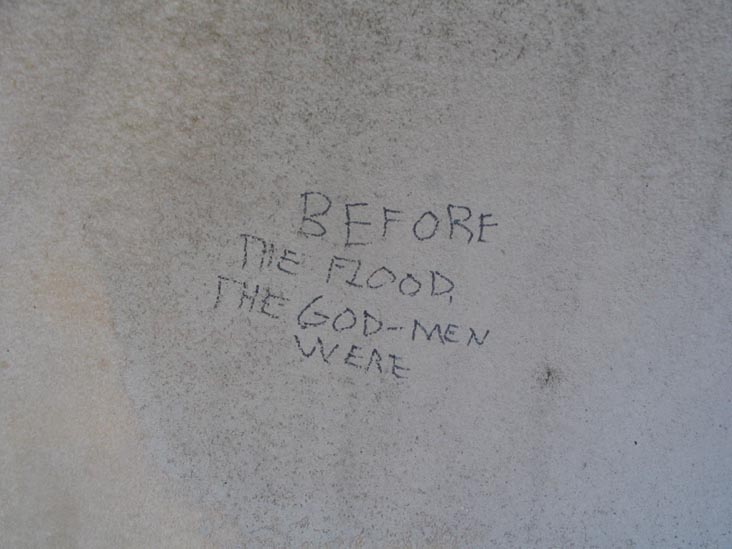 BEFORE
THE FLOOD,
THE GOD-MEN
WERE